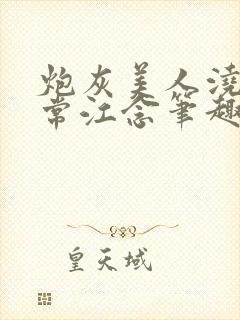 炮灰美人浇
常江念笔趣
皇天域